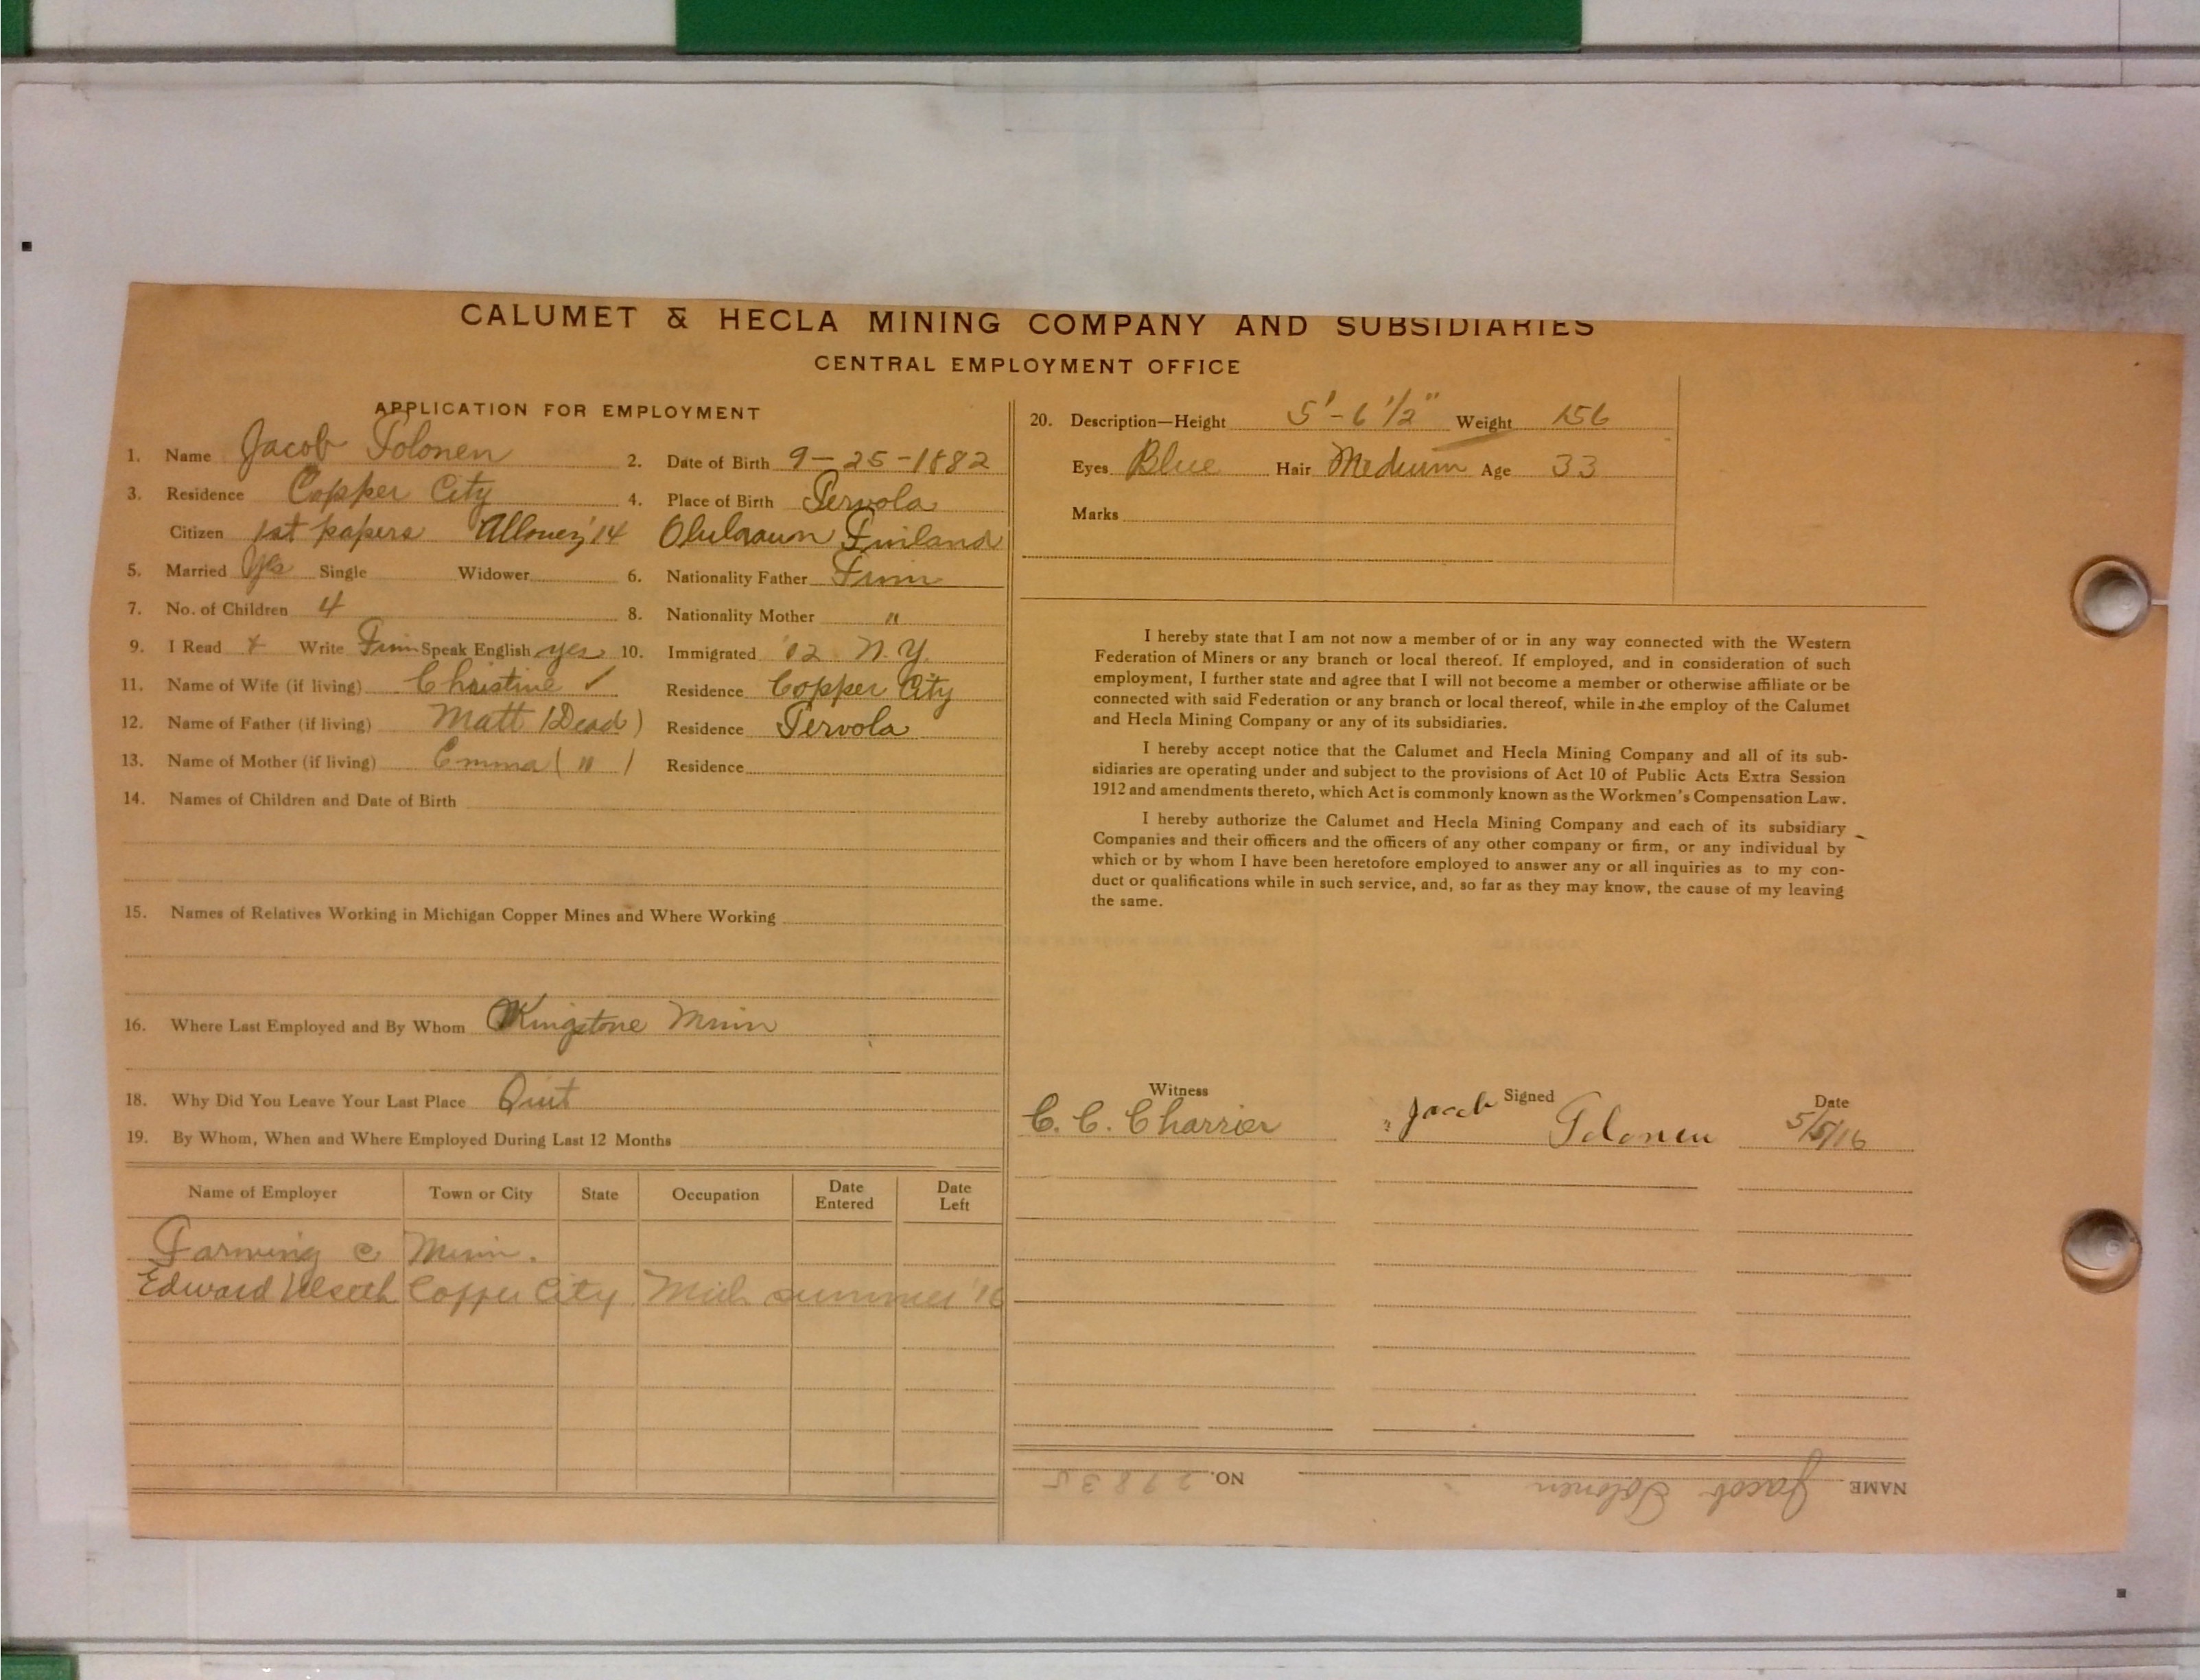 CALUMET & HECLA MINING COMPANY AND SUBSIDIARIES
CENTRAL EMPLOYMENT OFFICE
APPLICATION FOR EMPLOYMENT
1. Name Jacob Tolonen 2. Date of Birth 9-25-1882
3. Residence Copper City 4. Place of Birth Tervola
Citizen 1st papers Allouez '14 Finland
5. Married Yes Single Widower 6. Nationality Father Finn
7. No. of Children 4 8. Nationality Mother "
9. I Read + Write Finn Speak English yes 10. Immigrated '02 N.Y.
11. Name of Wife (if living) Christine ✓ Residence Copper City
12. Name of Father (if living) Matt (Dead) Residence Tervola
13. Name of Mother (if living) Emma ( " ) Residence
14. Names of Children and Date of Birth
15. Names of Relatives Working in Michigan Copper Mines and Where Working
16. Where Last Employed and By Whom Kingstone Minn
18. Why Did You Leave Your Last Place Quit
19. By Whom, When and Where Employed During Last 12 Months
Name of Employer Town or City State Occupation Date Entered Date Left
Farming @ Minn.
Edward Copper City Mich summer '16
20. Description—Height 5'-6 1/2" Weight 156
Eyes Blue Hair Medium Age 33
Marks
I hereby state that I am not now a member of or in any way connected with the Western
Federation of Miners or any branch or local thereof. If employed, and in consideration of such
employment, I further state and agree that I will not become a member or otherwise affiliate or be
connected with said Federation or any branch or local thereof, while in the employ of the Calumet
and Hecla Mining Company or any of its subsidiaries.
I hereby accept notice that the Calumet and Hecla Mining Company and all of its sub-
sidiaries are operating under and subject to the provisions of Act 10 of Public Acts Extra Session
1912 and amendments thereto, which Act is commonly known as the Workmen's Compensation Law.
I hereby authorize the Calumet and Hecla Mining Company and each of its subsidiary
Companies and their officers and the officers of any other company or firm, or any individual by
which or by whom I have been heretofore employed to answer any or all inquiries as to my con-
duct or qualifications while in such service, and, so far as they may know, the cause of my leaving
the same.
Witness Signed Date
C. C. Charrier Jacob Tolonen 5/5/16
NAME Jacob Tolonen NO. 27835